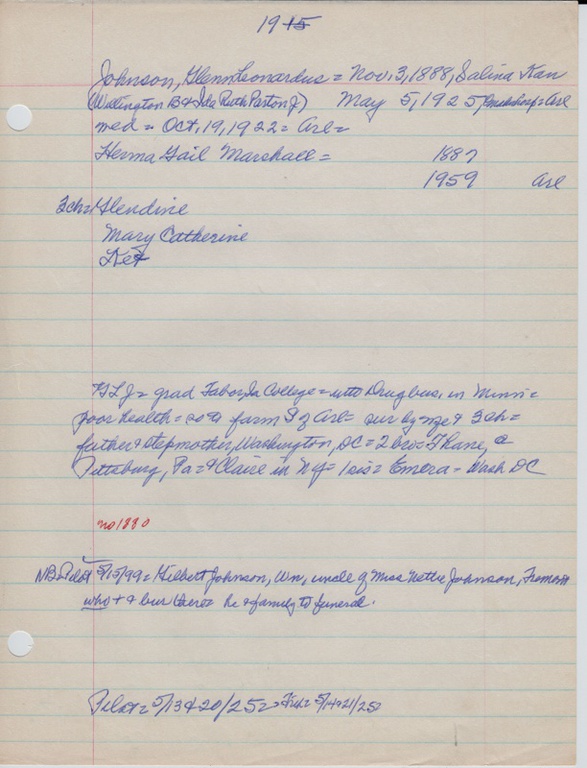 1915
Johnson, Glenn Leonardus = Nov. 3, 1888, Salina Kan
(Wellington B & Ida Ruth Paxton J) May 5, 1925, = Arl
med = Oct. 19, 1922 = Arl =
Herma Gail Marshall = 1887
1959 Arl
3ch = Glendine
Mary Catherine
GLJ = grad Tabor, Ia College = into Drug bus. in Minn =
poor health = so a farm S of Arl = sur by wife & 3 ch =
father & stepmother, Washington, DC = 2 bros = T Kane, @
Pittsburg, Pa = & Claire in NY = 1 sis = Emera = Wash DC
no 1880
NB = Pilot 5/15/99 = Gilbert Johnson, Wn, uncle of Miss Nettie Johnson, Fremont
who + & bur there = he & family to funeral.
Pilot = 5/13 & 20/25 = 5/14 & 21/25